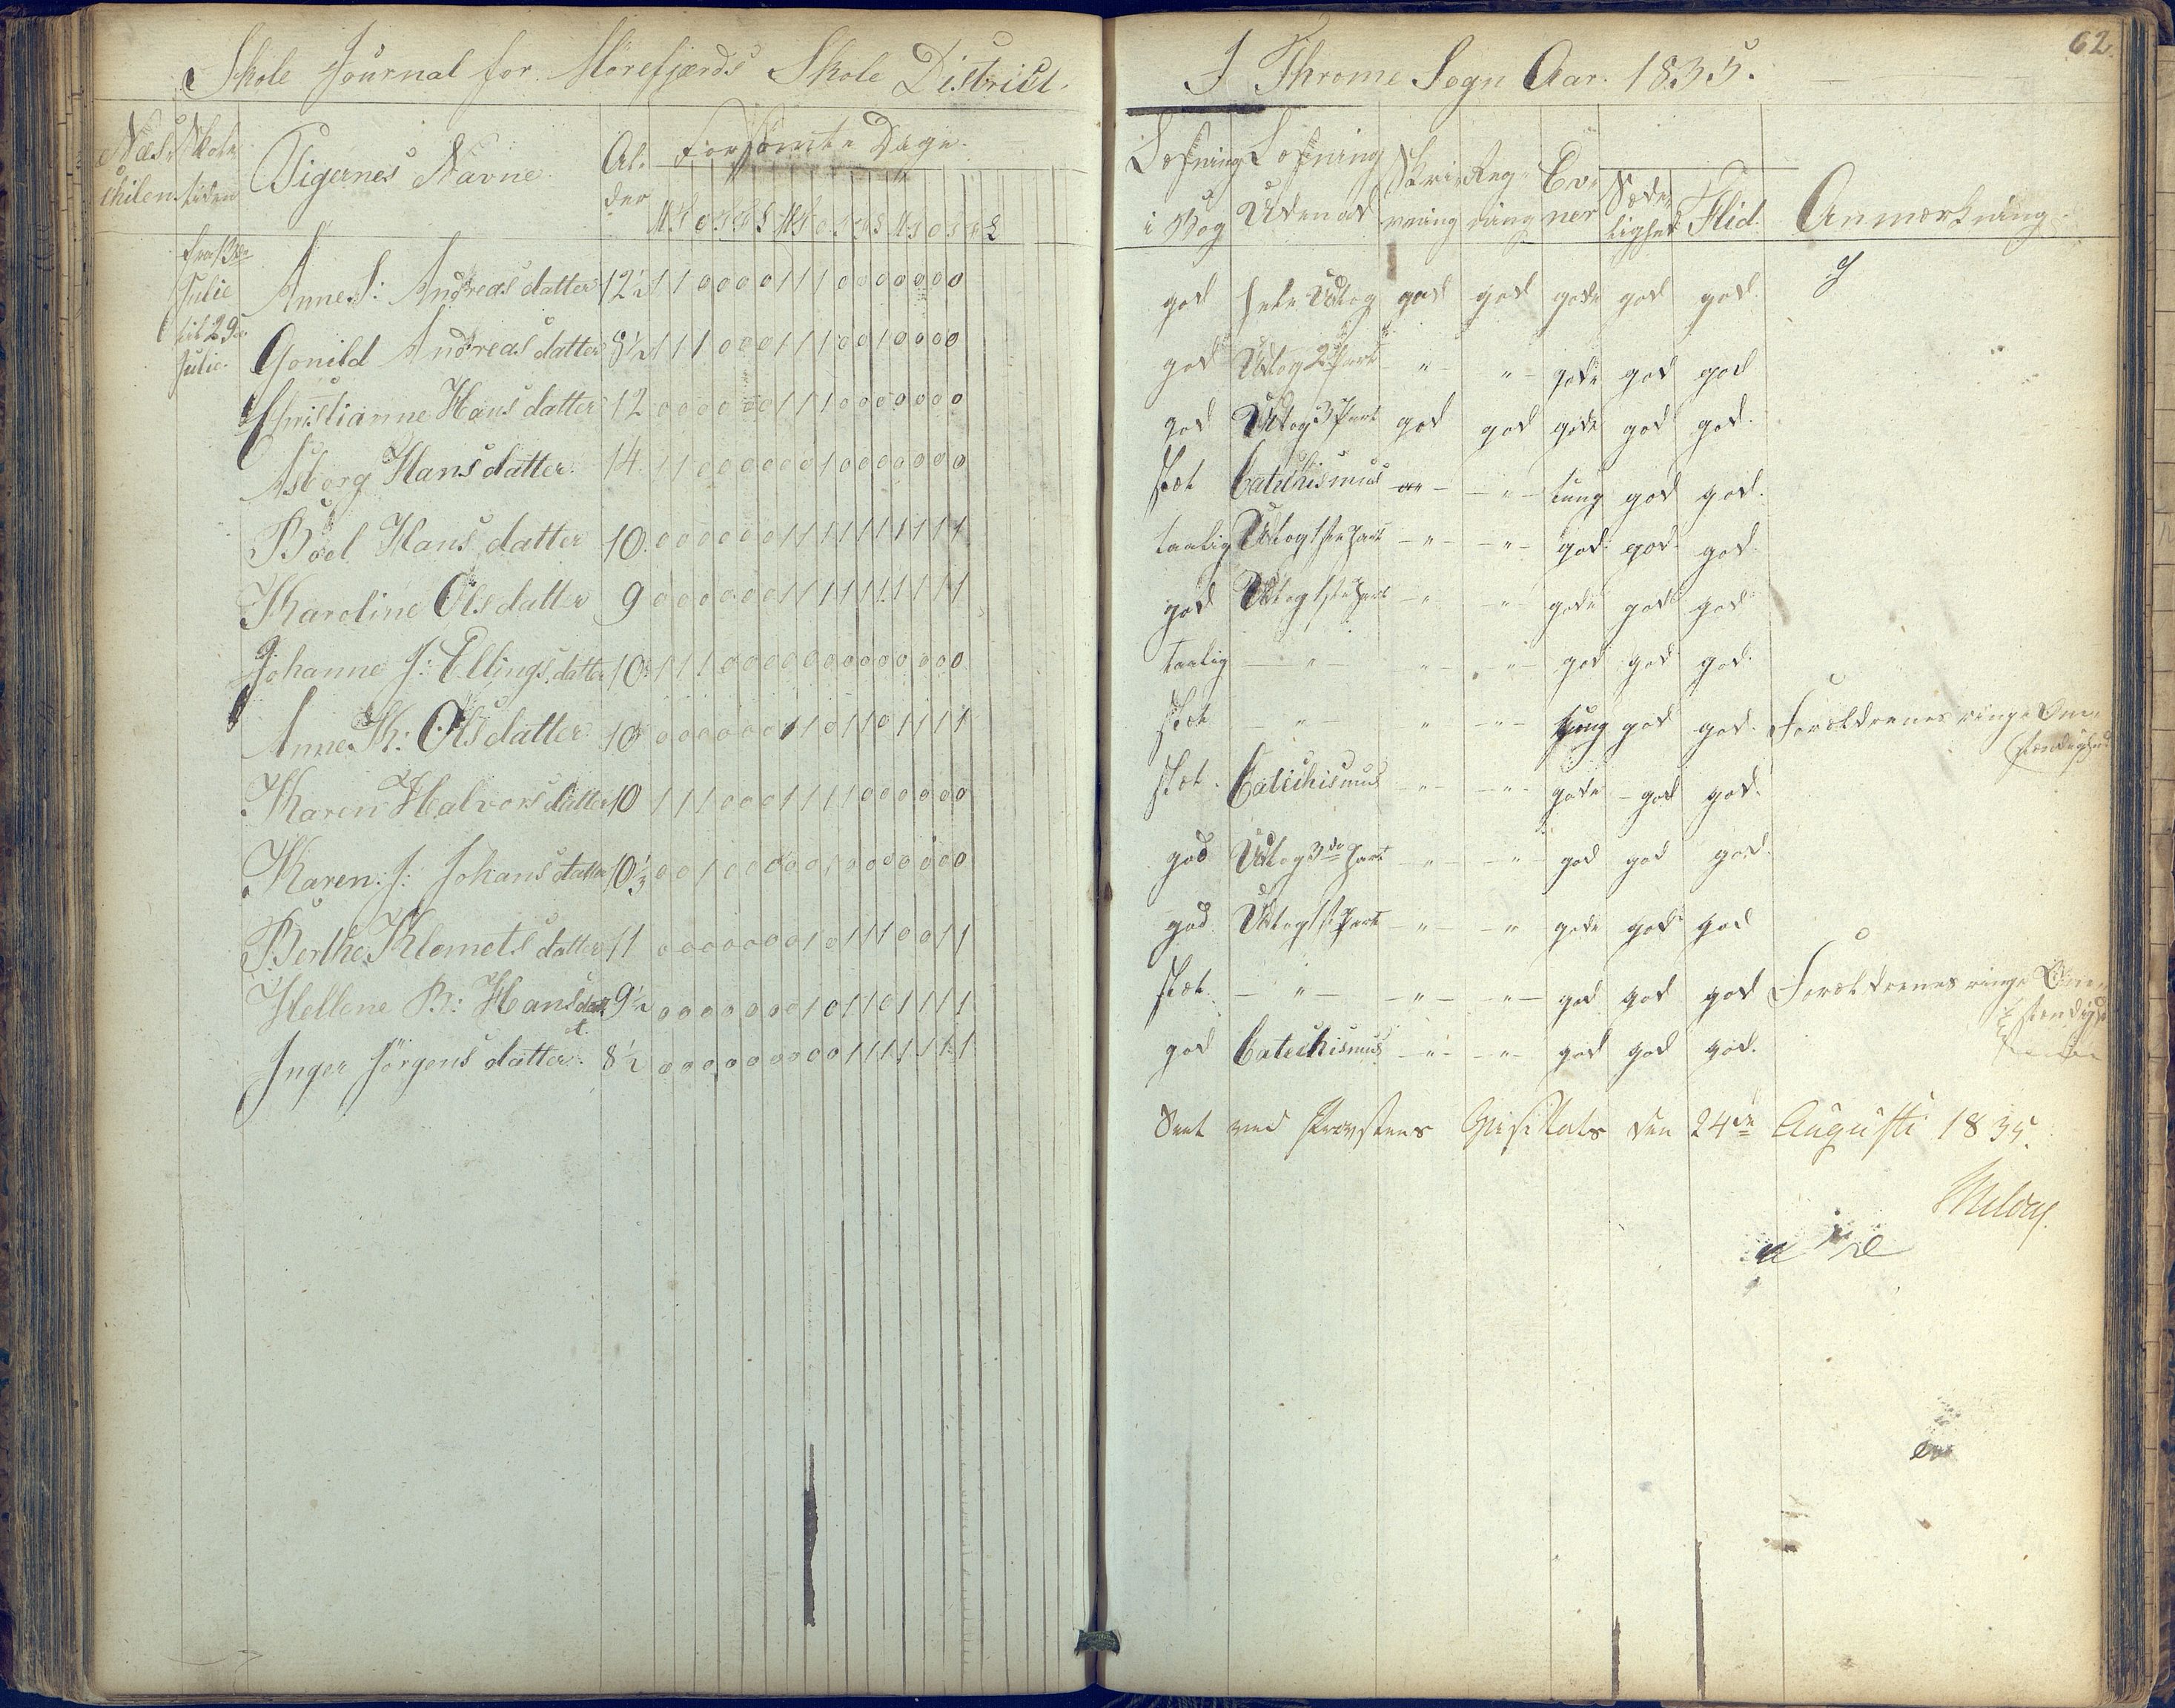 Skole Journal for Mörefjærds Skole District.
Skole tiden
Pigernes Navne
Al. der
Forsömte Dage.
M T O T F L M T O T F L M T O T F L
fra 13de Julie til 29de Julie.
Anne S: Andreas datter 12½ 1 1 0 0 0 0 1 1 1 0 0 0 0 0 0 0
Gonild Andreas datter 8½ 1 1 1 0 0 0 1 1 1 0 0 1 0 0 0 0
Christianne Hans datter 12 0 0 0 0 0 0 1 1 1 0 0 0 0 0 0 0
Asborg Hans datter 14 1 1 0 0 0 0 0 0 1 0 0 0 0 0 0 0
Boel Hans datter 10. 0 0 0 0 0 0 1 1 1 1 1 1 1 1 1 1
Karoline Ols datter 9 0 0 0 0 0 0 1 1 1 1 1 1 1 1 1 1
Johanne J: Ellings datter 10 1 1 1 0 0 0 0 0 0 0 0 0 0 0 0 0
Anne K: Ols datter 10 0 0 0 0 0 0 1 1 0 1 1 0 1 1 1 1
Karen Halvors datter 10 1 1 1 0 0 0 1 1 1 1 0 0 0 0 0 0
Karen: J: Johans datter 10⅓ 0 0 1 0 0 0 0 0 1 0 0 0 0 0 0 0
Berthe Klemets datter 11 0 0 0 0 0 0 0 1 0 1 1 1 0 0 1 1
Hellene B: Hans datt 9½ 0 0 0 0 0 0 0 1 0 1 1 0 1 1 1 1
Inger Jörgens datter. 8½ 0 0 0 0 0 0 0 0 0 1 1 1 1 1 1 1
62.
I Throme Sogn Aar. 1835.
Læsning i Bog
Læsning Udenad
Skrivning
Regning
Evner
Sædelighed
Flid
Anmærkning.
god hele Udtog god god gode god god.
god Udtog 2 Part " " gode god god
god Udtog 3 Part god god gode god god.
slet Catechismus " " tung god god.
taalig Udtog 1ste Part " " god god god.
god Udtog 1ste Part " " gode god god
taalig " " " god god god.
slet " " " tung god god. Forældrenes ringe Om-
stændighed
slet. Catechismus " " gode god god.
god Udtog 3de Part " " god god god.
god Udtog 1ste Part " " gode god god
slet. " " " god god god Forældrenes ringe Om-
stændighed
god Catechismus " " god god god.
Seet ved Provstens Visitats den 24de Augusti 1835.